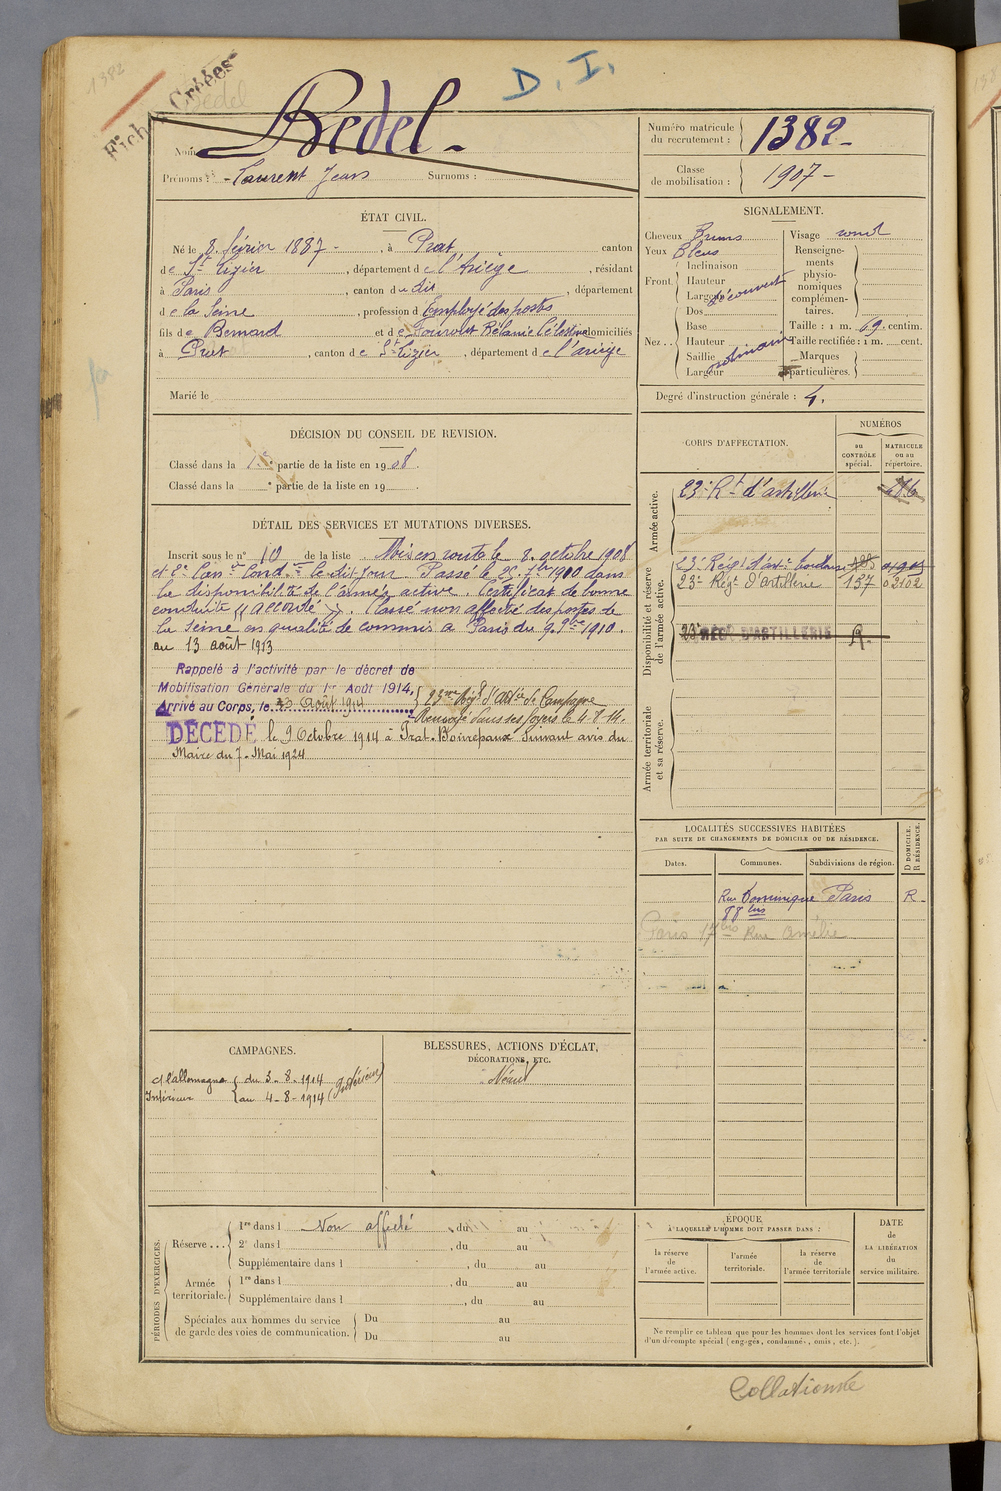 1382
Fiches Créées
Bedel
D. I.
Nom : Bedel
Prénoms : Laurent Jean Surnoms :
Numéro matricule du recrutement : 1382
Classe de mobilisation : 1907
ÉTAT CIVIL.
Né le 8 février 1887, à Prat canton
de St Lizier, département de l'Ariège, résidant
à Paris, canton du dit, département
de la Seine, profession d'Employé des postes
fils de Bernard et de Mélanie Célestine domiciliés
à Prat, canton de St Lizier, département de l'ariège
Marié le
SIGNALEMENT.
Cheveux Bruns Visage rond
Yeux Bleus Renseignements physionomiques complémentaires.
Front Inclinaison
Hauteur
Largeur découvert
Nez .. Dos
Base Taille : 1 m. 69 centim.
Hauteur Taille rectifiée : 1 m. cent.
Saillie Marques particulières.
Largeur ordinaire
Degré d'instruction générale : 4.
DÉCISION DU CONSEIL DE REVISION.
Classé dans la 1re partie de la liste en 1908.
Classé dans la e partie de la liste en 19 .
DÉTAIL DES SERVICES ET MUTATIONS DIVERSES.
Inscrit sous le n° 10 de la liste Mis en route le 8 octobre 1908
et 2e Can er Cond. er le dit jour. Passé le 25 7bre 1910 dans
la disponibilité de l'armée active. Certificat de bonne
conduite "accordé". Classé non affecté des postes de
la Seine en qualité de commis à Paris du 9. 9bre 1910.
au 13 août 1913
Rappelé à l'activité par le décret de
Mobilisation Générale du 1er Août 1914,
Arrivé au Corps, le 3 août 1914 23me Régt d'Artie de Campagne
Renvoyé dans ses foyers le 4-8-14.
DÉCÉDÉ le 9 Octobre 1914 à Prat-Bonrepaux suivant avis du
Maire du 7. Mai 1924
CORPS D'AFFECTATION.
NUMÉROS
au CONTRÔLE spécial.
MATRICULE ou au répertoire.
Armée active.
23e Rt d'artillerie
Disponibilité et réserve de l'armée active.
23e Régt d'arte Toulouse
23e Régt d'Artillerie 137 03102
23e REGt D'ARTILLERIE R.
Armée territoriale et sa réserve.
LOCALITÉS SUCCESSIVES HABITÉES
PAR SUITE DE CHANGEMENTS DE DOMICILE OU DE RÉSIDENCE.
D DOMICILE. R RÉSIDENCE.
Dates. Communes. Subdivisions de région.
Rue Dominique Paris R.
88 bis
Paris 17 bis Rue Amélie
CAMPAGNES.
Cl'allemagne du 3-8-1914 (Intérieur)
Intérieur au 4-8-1914
BLESSURES, ACTIONS D'ÉCLAT,
DÉCORATIONS, ETC.
Néant
PÉRIODES D'EXERCICES.
Réserve ... 1re dans l Non affecté, du au
2e dans l , du au
Supplémentaire dans l , du au
Armée territoriale. 1re dans l , du au
Supplémentaire dans l , du au
Spéciales aux hommes du service de garde des voies de communication. Du au
Du au
ÉPOQUE
À LAQUELLE L'HOMME DOIT PASSER DANS :
la réserve de l'armée active.
l'armée territoriale.
la réserve de l'armée territoriale
DATE de LA LIBÉRATION du service militaire.
Ne remplir ce tableau que pour les hommes dont les services font l'objet
d'un décompte spécial (engagés, condamnés, omis, etc.).
Collationnée